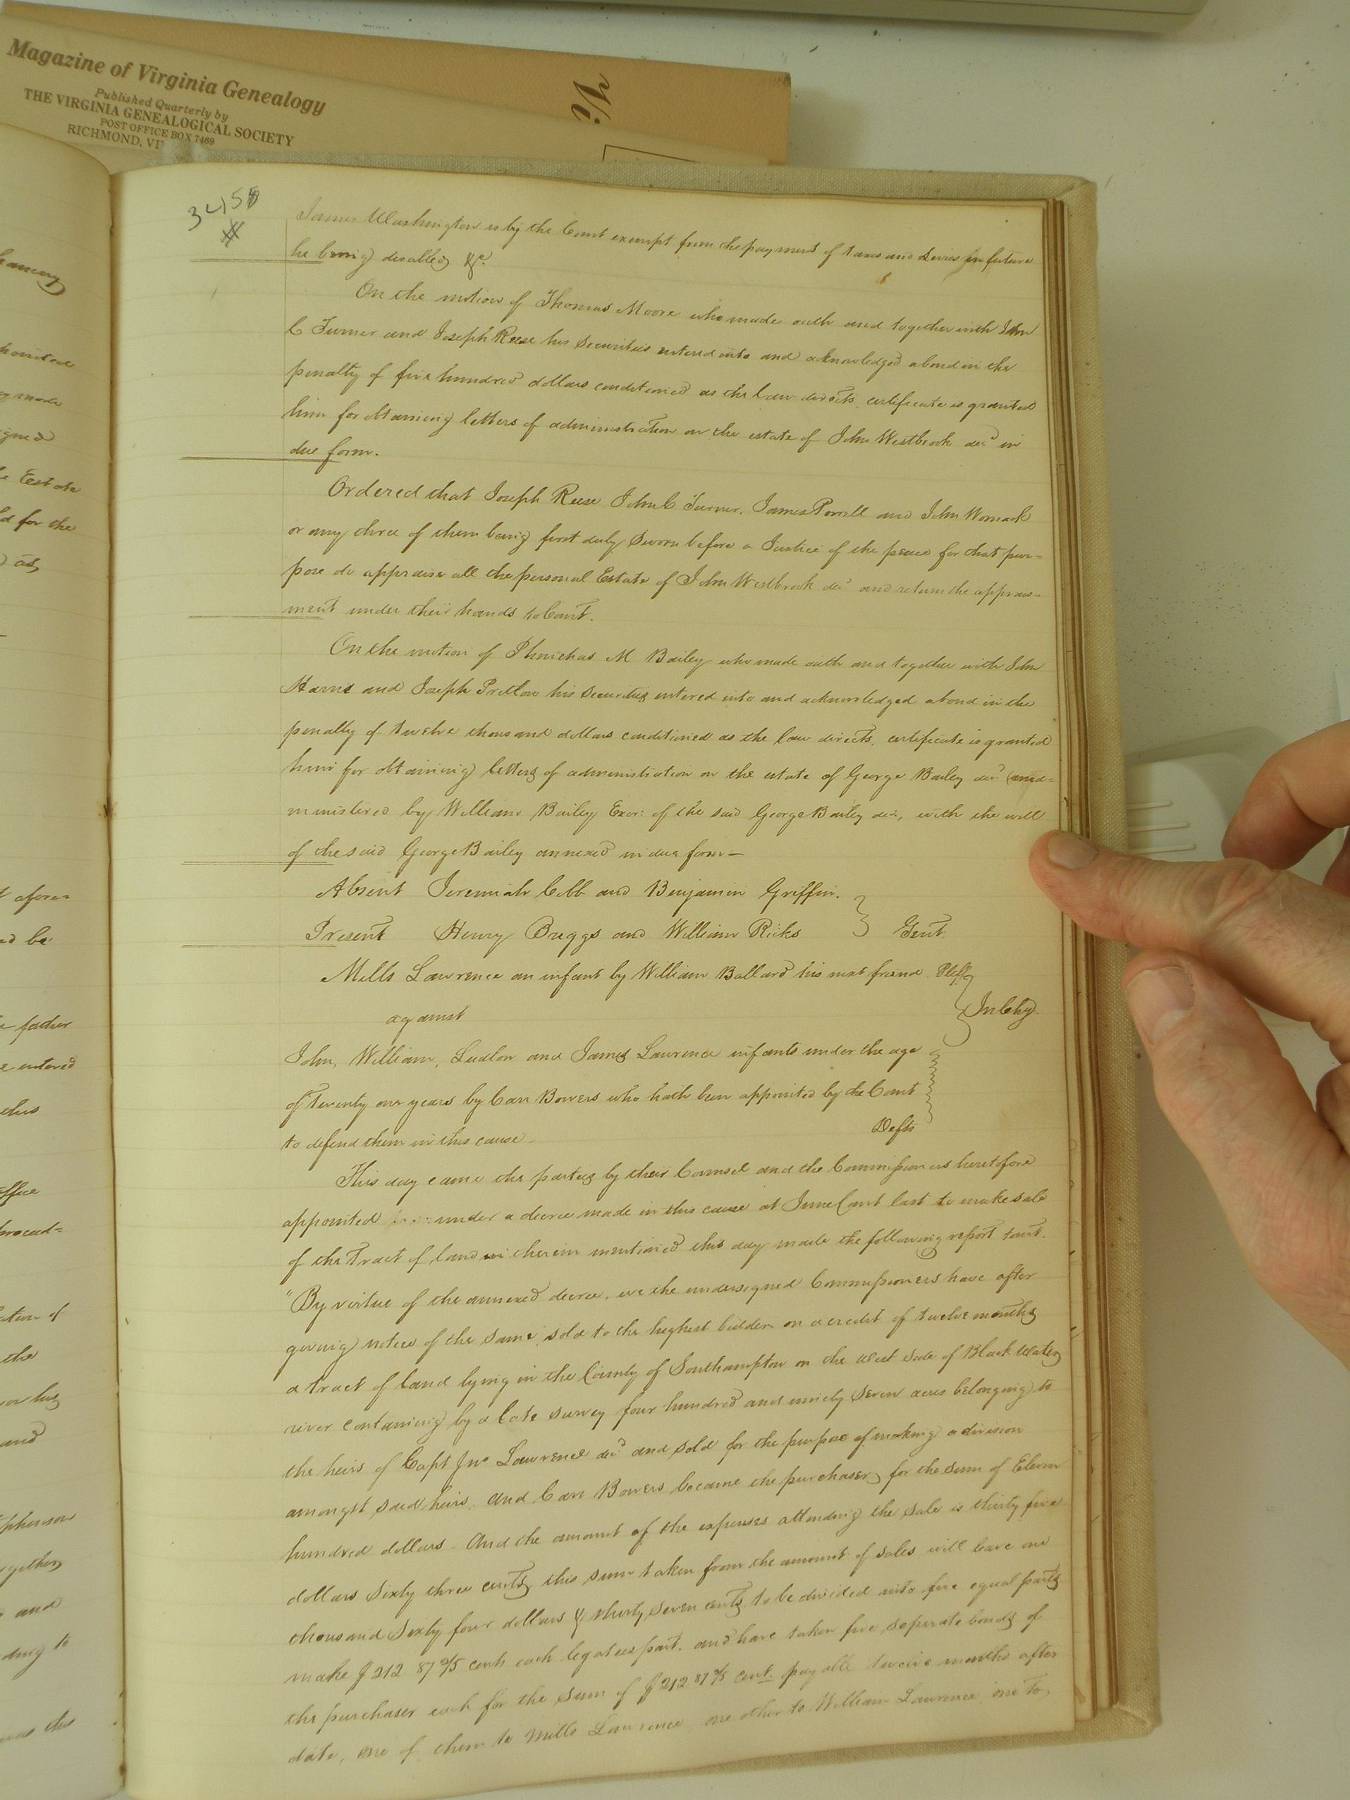 Magazine of Virginia Genealogy
Published Quarterly by
THE VIRGINIA GENEALOGICAL SOCIETY
POST OFFICE BOX 7469
RICHMOND, VI
Vi
James Washington is by the Court exempt from the payment of taxes and Levies in future
he being disabled &c.
On the motion of Thomas Moore who made oath and together with John
C Turner and Joseph Reese his Securities entered into and acknowledged a bond in the
penalty of five hundred dollars conditioned as the Law directs, certificate is granted
him for obtaining letters of administration on the estate of John Westbrook decd in
due form.
Ordered that Joseph Reese John C Turner, James Porrell and John Womack
or any three of them being first duly Sworn before a Justice of the peace for that pur=
pose do appraise all the personal Estate of John Westbrook decd and return the appraise=
ment under their hands to Court.
On the motion of Phinehas M Bailey who made oath and together with John
Harris and Joseph Pretlow his Securities entered into and acknowledged a bond in the
penalty of twelve thousand dollars conditioned as the law directs, certificate is granted
him for obtaining letters of administration on the estate of George Bailey decd unad=
ministered by William Bailey Exor: of the said George Bailey dec, with the will
of the said George Bailey annexed in due form
Absent Jeremiah Cobb and Benjamin Griffin.
Present Henry Briggs and William Ricks Gent.
Mills Lawrence an infant by William Ballard his next friend Pltff
against In Chy.
John, William, Ludlow and James Lawrence infants under the age
of twenty one years by Carr Bowers who hath been appointed by the Court
to defend them in this cause Defts
This day came the parties by their Counsel and the Commissioners heretofore
appointed under a decree made in this cause at June Court last to make sale
of the Tract of land therein mentioned this day made the following report towit.
"By virtue of the annexed decree, we the undersigned Commissioners have after
giving notice of the same, sold to the highest bidder on a credit of twelve months
a tract of land lying in the County of Southampton on the west side of Black Water
river containing by a late survey four hundred and ninety seven acres belonging to
the heirs of Capt Jno Lawrence decd and sold for the purpose of making a division
amongst said heirs, and Carr Bowers became the purchaser, for the sum of Eleven
hundred dollars. And the amount of the expenses attending the sale is thirty five
dollars Sixty three cents, this sum taken from the amount of sales will leave one
thousand Sixty four dollars & thirty seven cents to be divided into five equal parts
make $212 87 2/5 cents each legatees part, and have taken five seperate bonds of
the purchaser each for the sum of $212.87 2/5 cent payable twelve months after
date, one of them to Mills Lawrence, one other to William Lawrence, one to